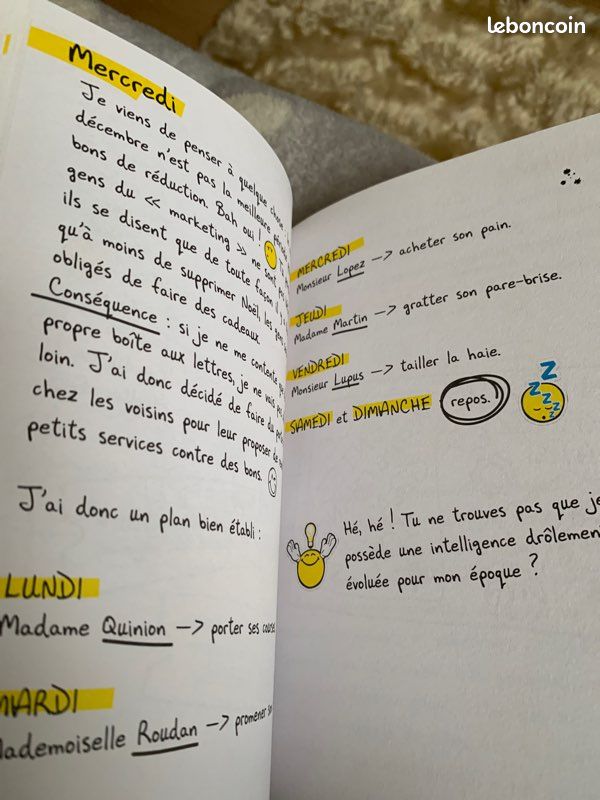 leboncoin
Mercredi
Je viens de penser à quelque chose
décembre n'est pas la meilleure
bons de réduction. Bah oui !
gens du « marketing » ne sont
ils se disent que de toute façon
qu'à moins de supprimer Noël, les
obligés de faire des cadeaux.
Conséquence : si je ne me contente
propre boîte aux lettres, je ne vais pas
loin. J'ai donc décidé de faire du
chez les voisins pour leur proposer de
petits services contre des bons.
J'ai donc un plan bien établi :
LUNDI
Madame Quinion -> porter ses
MARDI
Mademoiselle Roudan -> promener
MERCREDI
Monsieur Lopez -> acheter son pain.
JEUDI
Madame Martin -> gratter son pare-brise.
VENDREDI
Monsieur Lupus -> tailler la haie.
SAMEDI et DIMANCHE repos.
Z Z Z Z Z
Hé, hé ! Tu ne trouves pas que je
possède une intelligence drôlement
évoluée pour mon époque ?